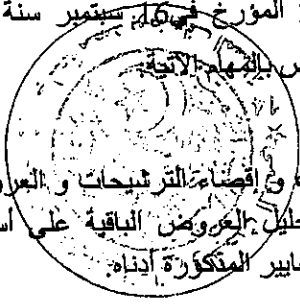 المؤرخ في 16 سبتمبر سنة
بالمهام الآتية
و إقصاء الترشيحات و العرو
حليل العروض الباقية على أس
ايير المذكورة أدناه.